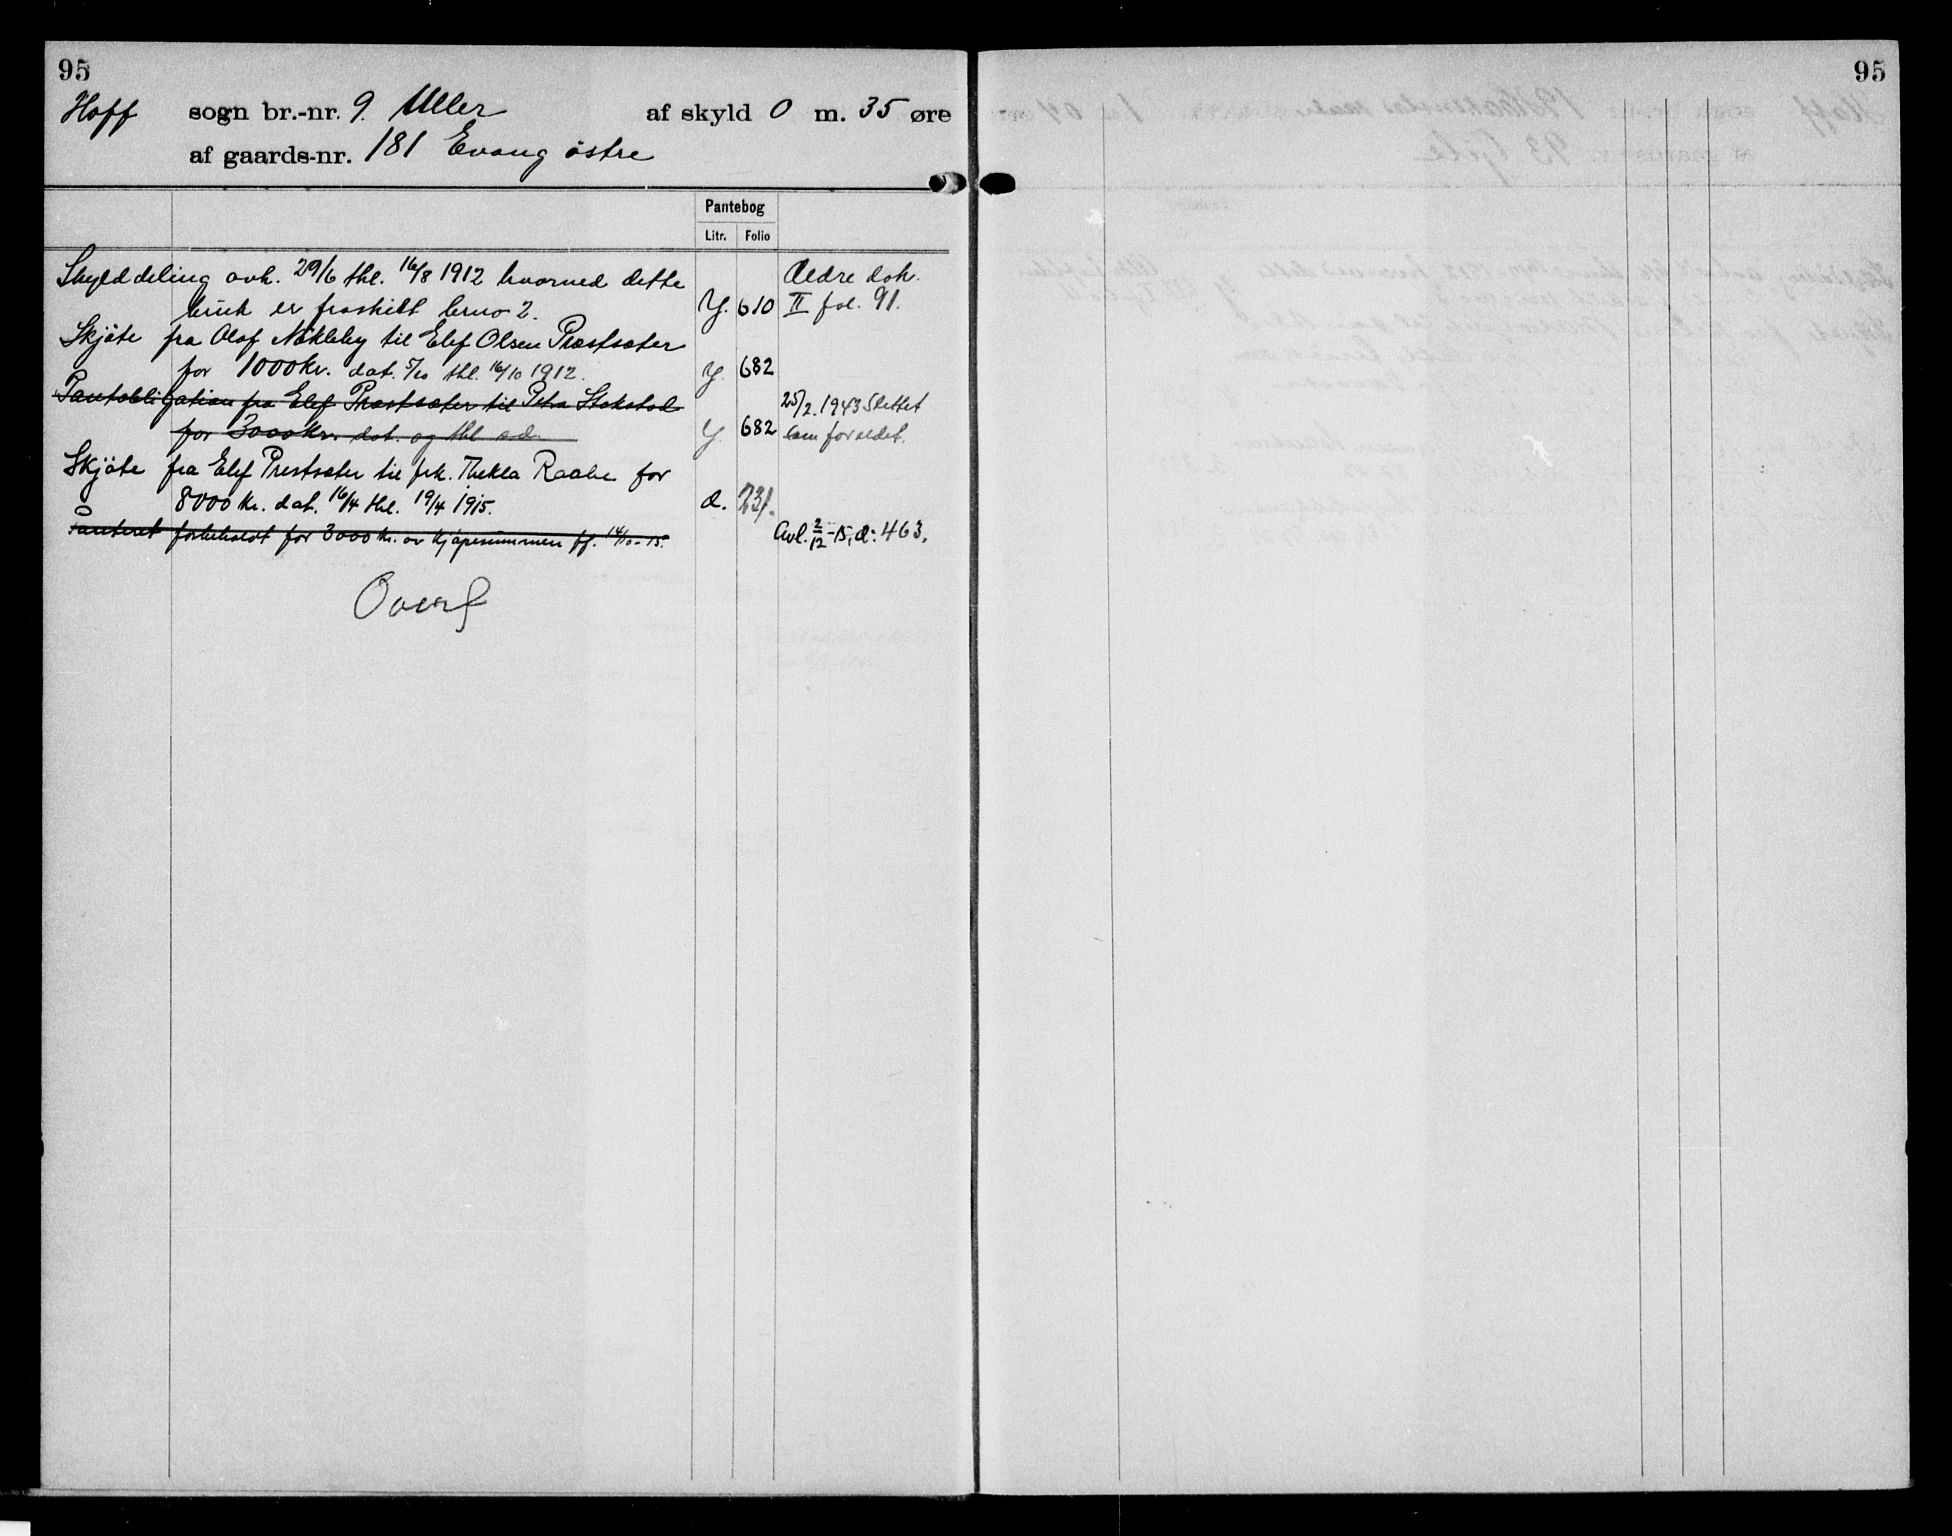 95
Hoff sogn br.-nr. 9. Uller af skyld 0 m. 35 øre
af gaards-nr. 181 Evang östre
Pantebog
Litr. Folio
Skylddeling avh. 29/6 thl. 16/8 1912 hvorved dette Ældre dok.
bruk er fraskilt brno 2. Y. 610 II fol. 91.
Skjöte fra Olaf Nökleby til Elef Olsen Præstsæter
for 1000 kr. dat. 5/10 thl. 16/10 1912. Y. 682
Pantobligation fra Elef Præstsæter til Stokstad 25/2. 1943 Slettet
for 3000 kr. dat. og thl. sd. Y. 682 som foreldet.
Skjöte fra Elef Prestsæter til frk. Thekla Raabe for
8000 kr. dat. 16/4 thl. 19/4 1915. d. 231.
Panteret forbeholdt for 3000 kr. av kjøpesummen ff. 14/10-15. Avl. 2/12-15, d: 463.
Overf
95